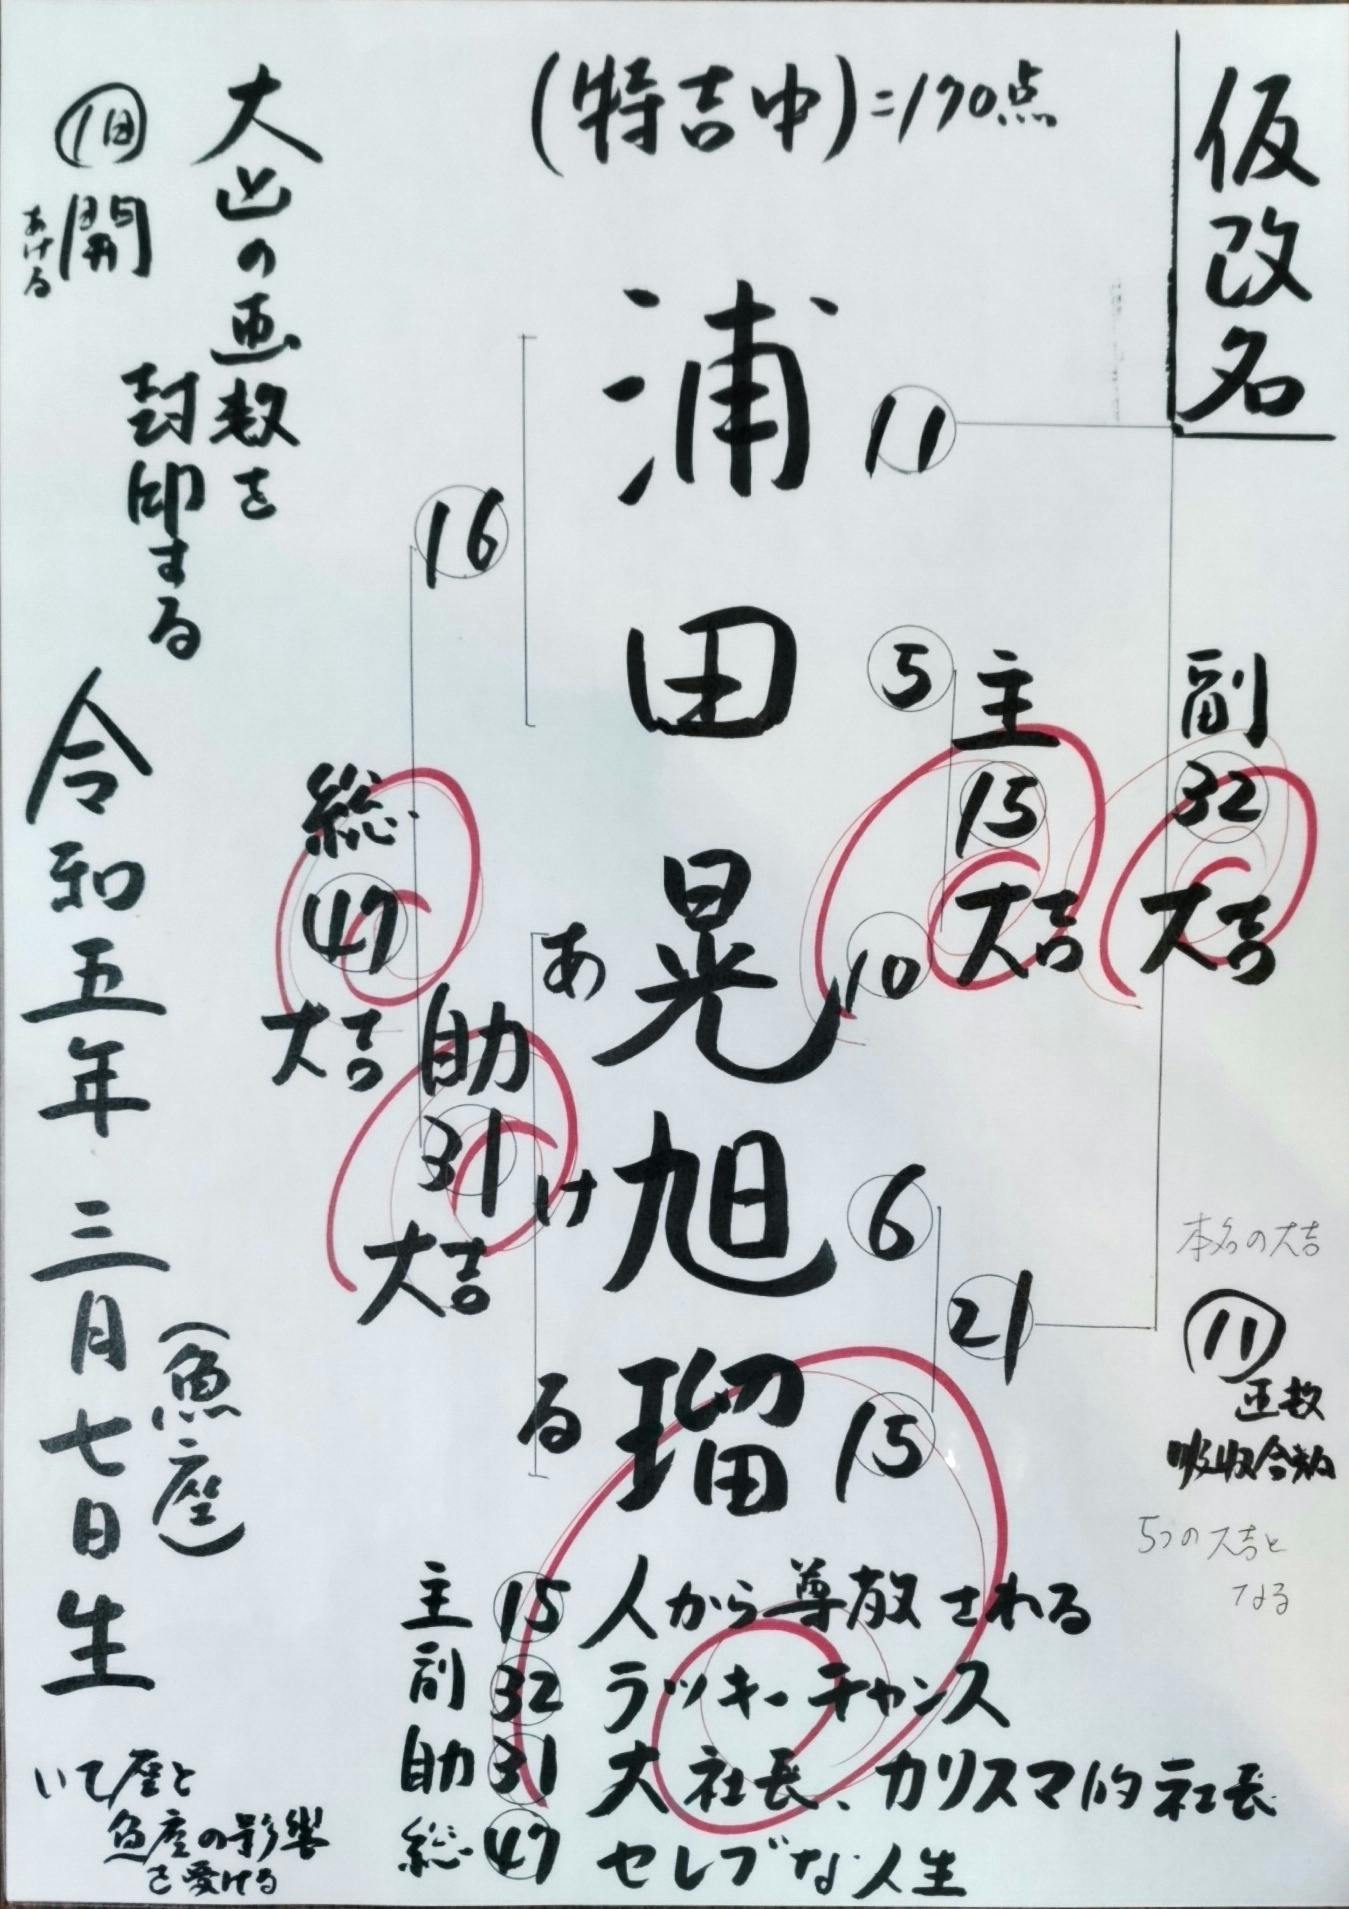 仮改名
(特吉中)=190点
大凶の画数を
封印する
①旧 開
あける
浦田晃旭瑠
あける
11
5
10
6
15
16
21
主
15
大吉
副
32
大吉
総
47
大吉
助
31
大吉
本名の大吉
11
画数
吸収合数
5つの大吉と
なる
令和五年三月七日生
(魚座)
主 15 人から尊敬される
副 32 ラッキーチャンス
助 31 大社長、カリスマ的社長
総 47 セレブな人生
いて座と
魚座の影響
を受ける